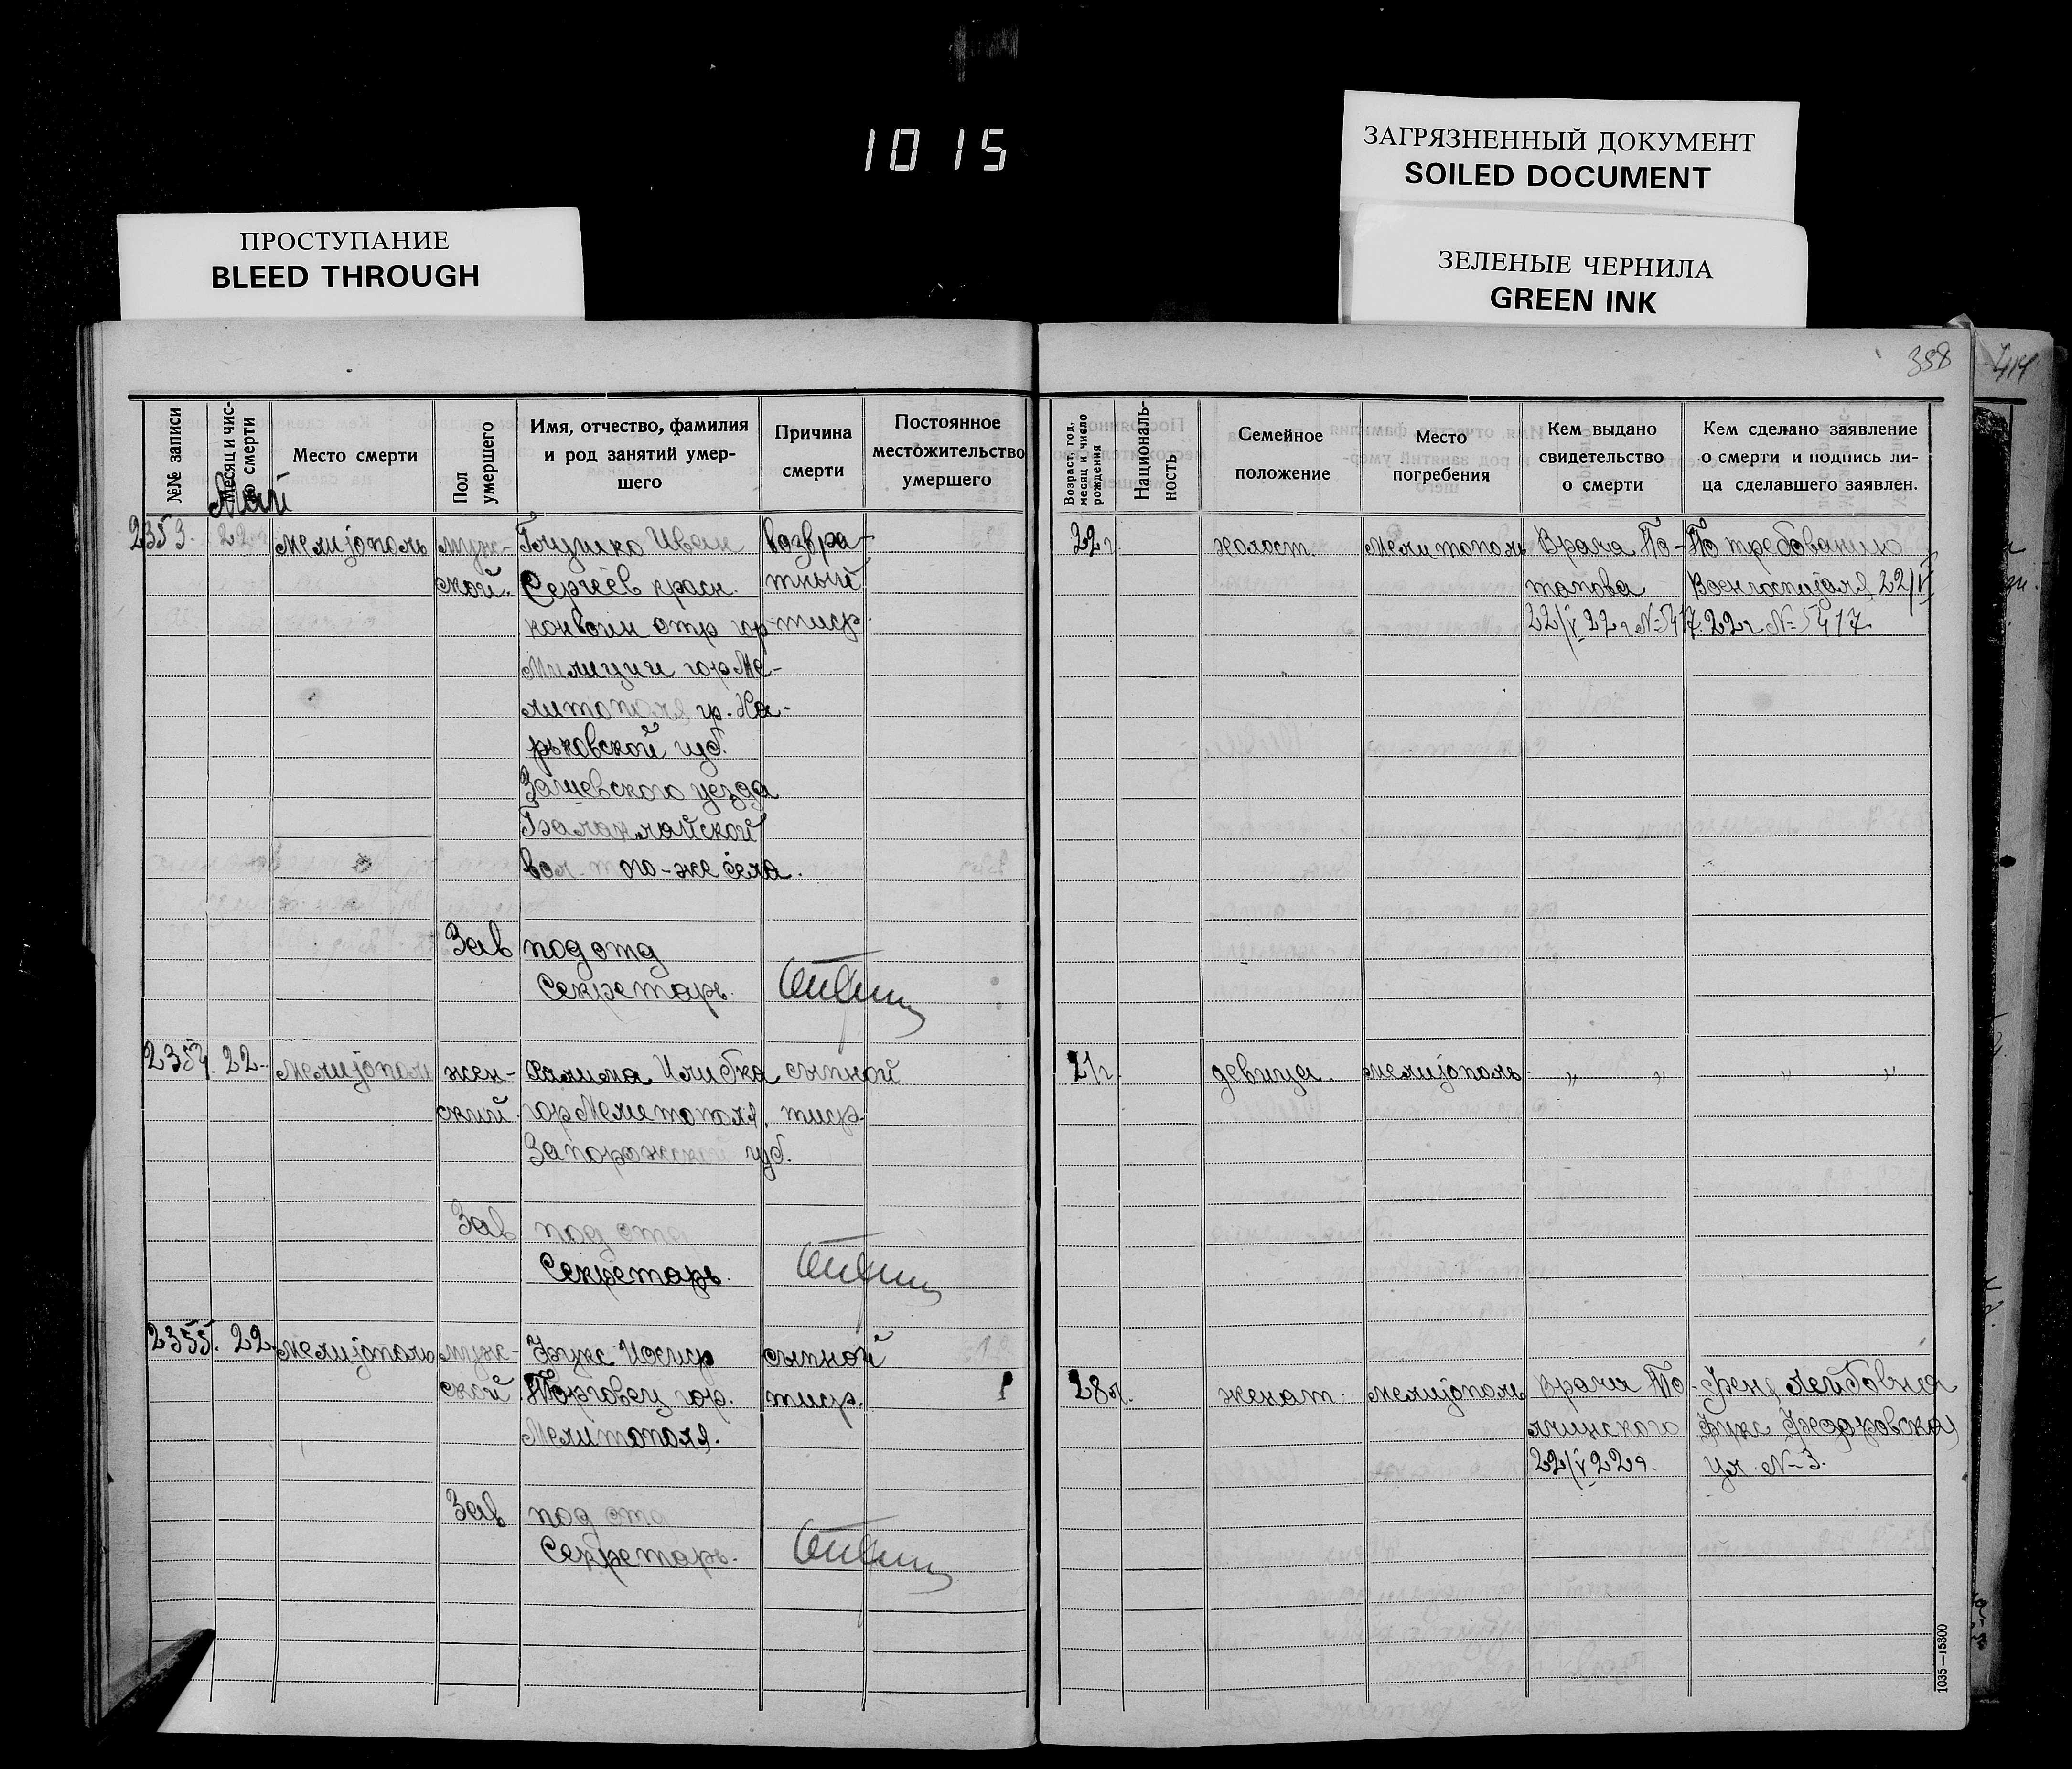 1015
ЗАГРЯЗНЕННЫЙ ДОКУМЕНТ
SOILED DOCUMENT
ПРОСТУПАНИЕ
BLEED THROUGH
ЗЕЛЕНЫЕ ЧЕРНИЛА
GREEN INK
358
№№ записи
Месяц и чис-
ло смерти
Место смерти
Пол
умершего
Имя, отчество, фамилия
и род занятий умер-
шего
Причина
смерти
Постоянное
местожительство
умершего
Возраст: год,
месяц и число
рождения
Националь-
ность
Семейное
положение
Место
погребения
Кем выдано
свидетельство
о смерти
Кем сделано заявление
о смерти и подпись ли-
ца сделавшего заявлен.
Май
2353. 22 Мелитополь муж- Глушко Иван возвра- 22 г. холост. Мелитополь Врача По- По требованию
ской. Сергеев красн. тный тапова Воен госпиталя 22/V
конвоин отр гор тиф. 22/V 22 г № 5417. 22 г. № 5417.
Милиции гор Ме-
литополя гр. Ха-
рьковской губ.
уезда
Балаклайской
вол. того-же села.
Зав под отд
Секретарь.
2354. 22. Мелитополь жен- сыпной 21 г. девица. Мелитополь „ „ „ „
ский. гор Мелитополя, тиф.
Запорожской губ.
Зав под отд
Секретарь.
2355. 22. Мелитополь муж- Фукс Иосиф сыпной
ской Торговец гор. тиф. 28 л. женат. Мелитополь Врача Лейбовна
Мелитополя. Фукс
22/V 22 г. ул. № 3.
Зав под отд
Секретарь.
1035—15800